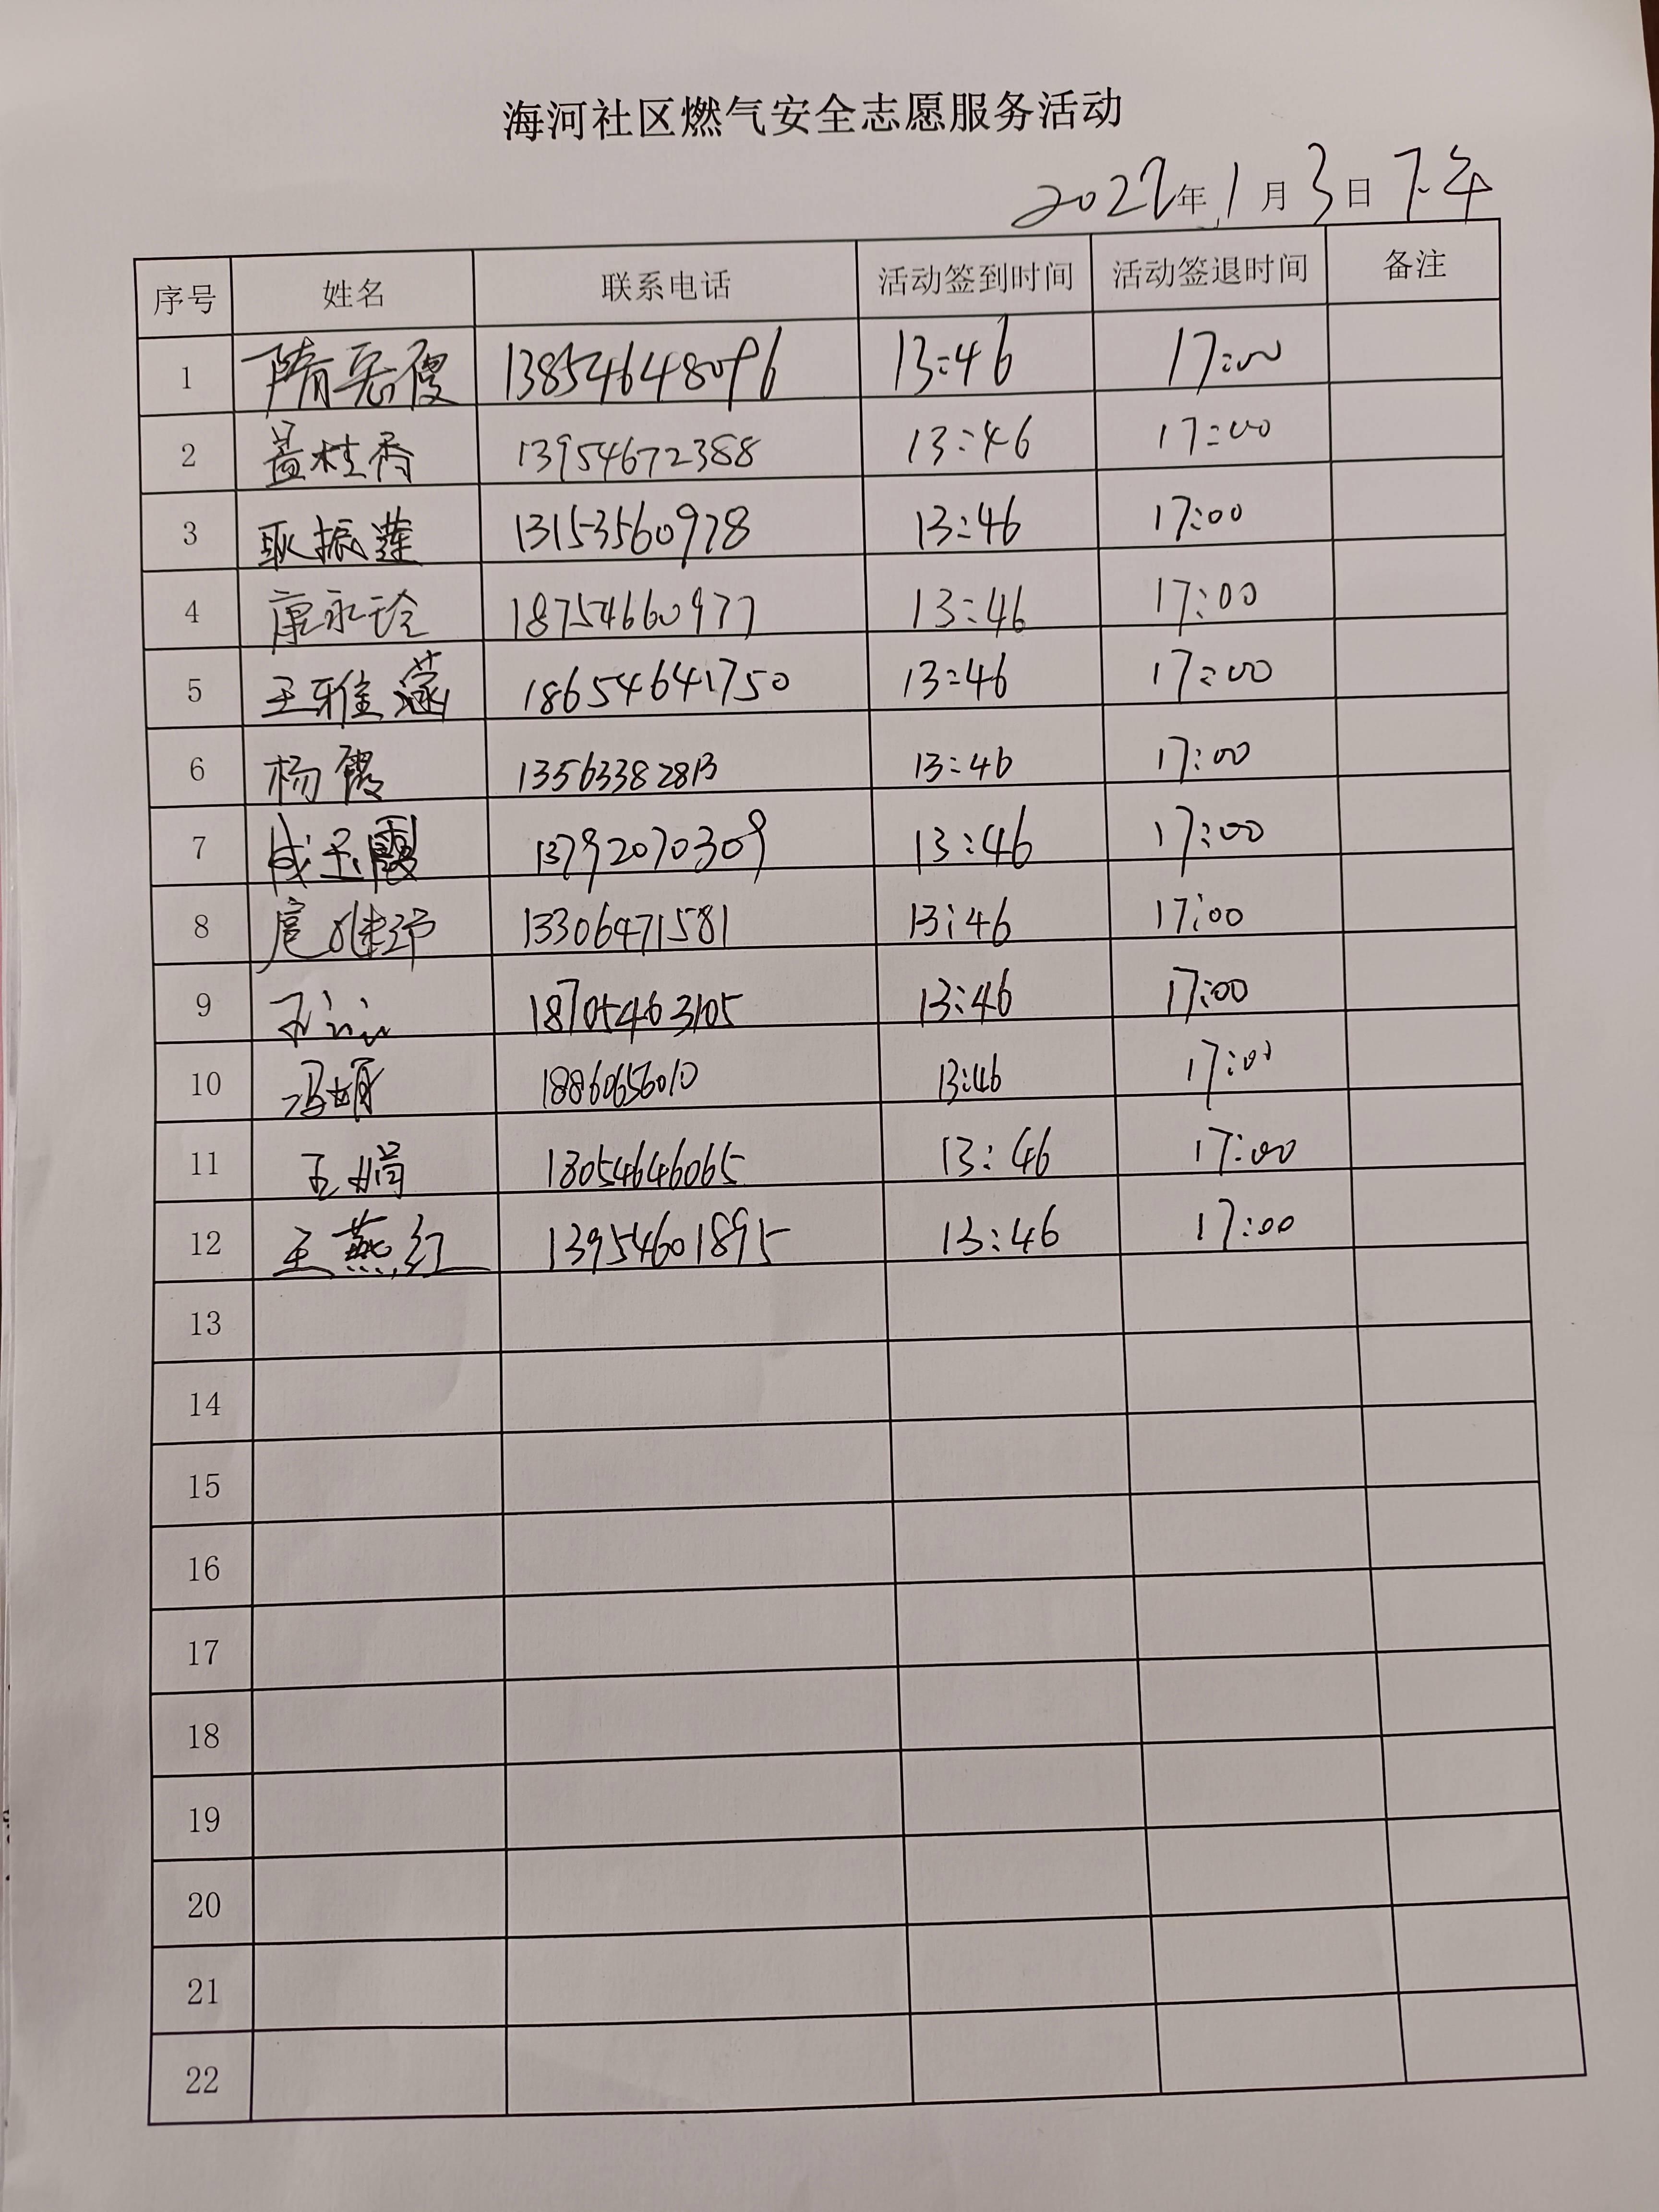 海河社区燃气安全志愿服务活动
2022年1月3日下午
序号 姓名 联系电话 活动签到时间 活动签退时间 备注
1 隋 霞 13854648096 13:46 17:00
2 盖桂香 13954672388 13:46 17:00
3 耿振莲 13153560978 13:46 17:00
4 康永玲 18754660977 13:46 17:00
5 王雅涵 18654641750 13:46 17:00
6 杨霞 13563382813 13:46 17:00
7 成玉霞 13792070309 13:46 17:00
8 扈继 13306471581 13:46 17:00
9 18705463105 13:46 17:00
10 冯娟 18860656010 13:46 17:00
11 王娟 13054646065 13:46 17:00
12 王燕红 13954601895 13:46 17:00
13
14
15
16
17
18
19
20
21
22